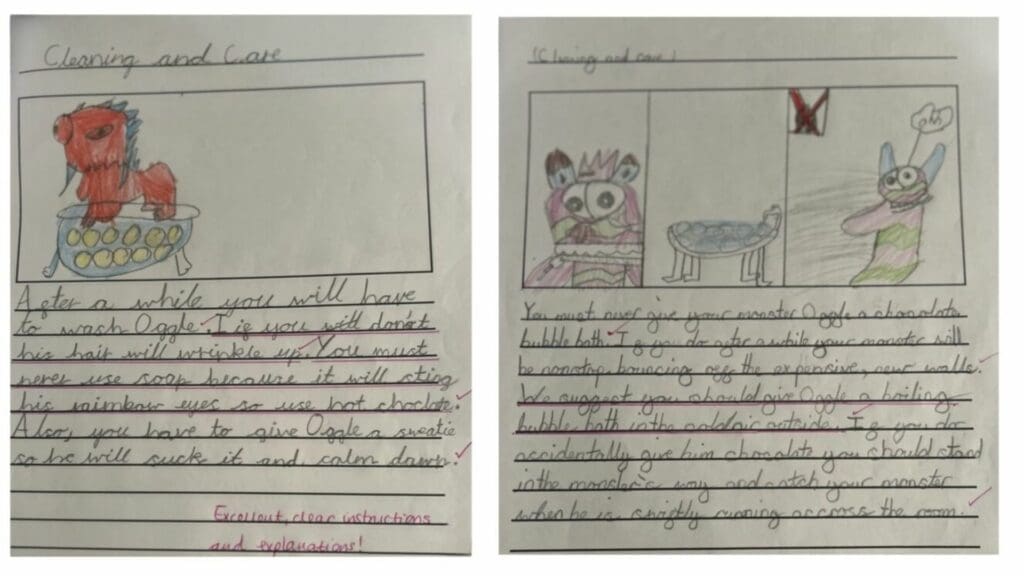 Cleaning and Care
After a while you will have
to wash Oggle. If you will don't
his hair will wrinkle up. You must
never use soap because it will sting
his rainbow eyes so use hot choclate.
Also, you have to give Oggle a sweatie
so he will suck it and calm down.
Excellent, clear instructions
and explanations!
(Cleaning and care)
You must never give your monster Oggle a chocolate
bubble bath. If you do after a while your monster will
be nonstop bouncing off the expensive, new walls.
We suggest you should give Oggle a boiling
bubble bath in the cold air outside. If you do
accidentally give him chocolate you should stand
in the monster's way and catch your monster
when he is swiftly running accross the room.